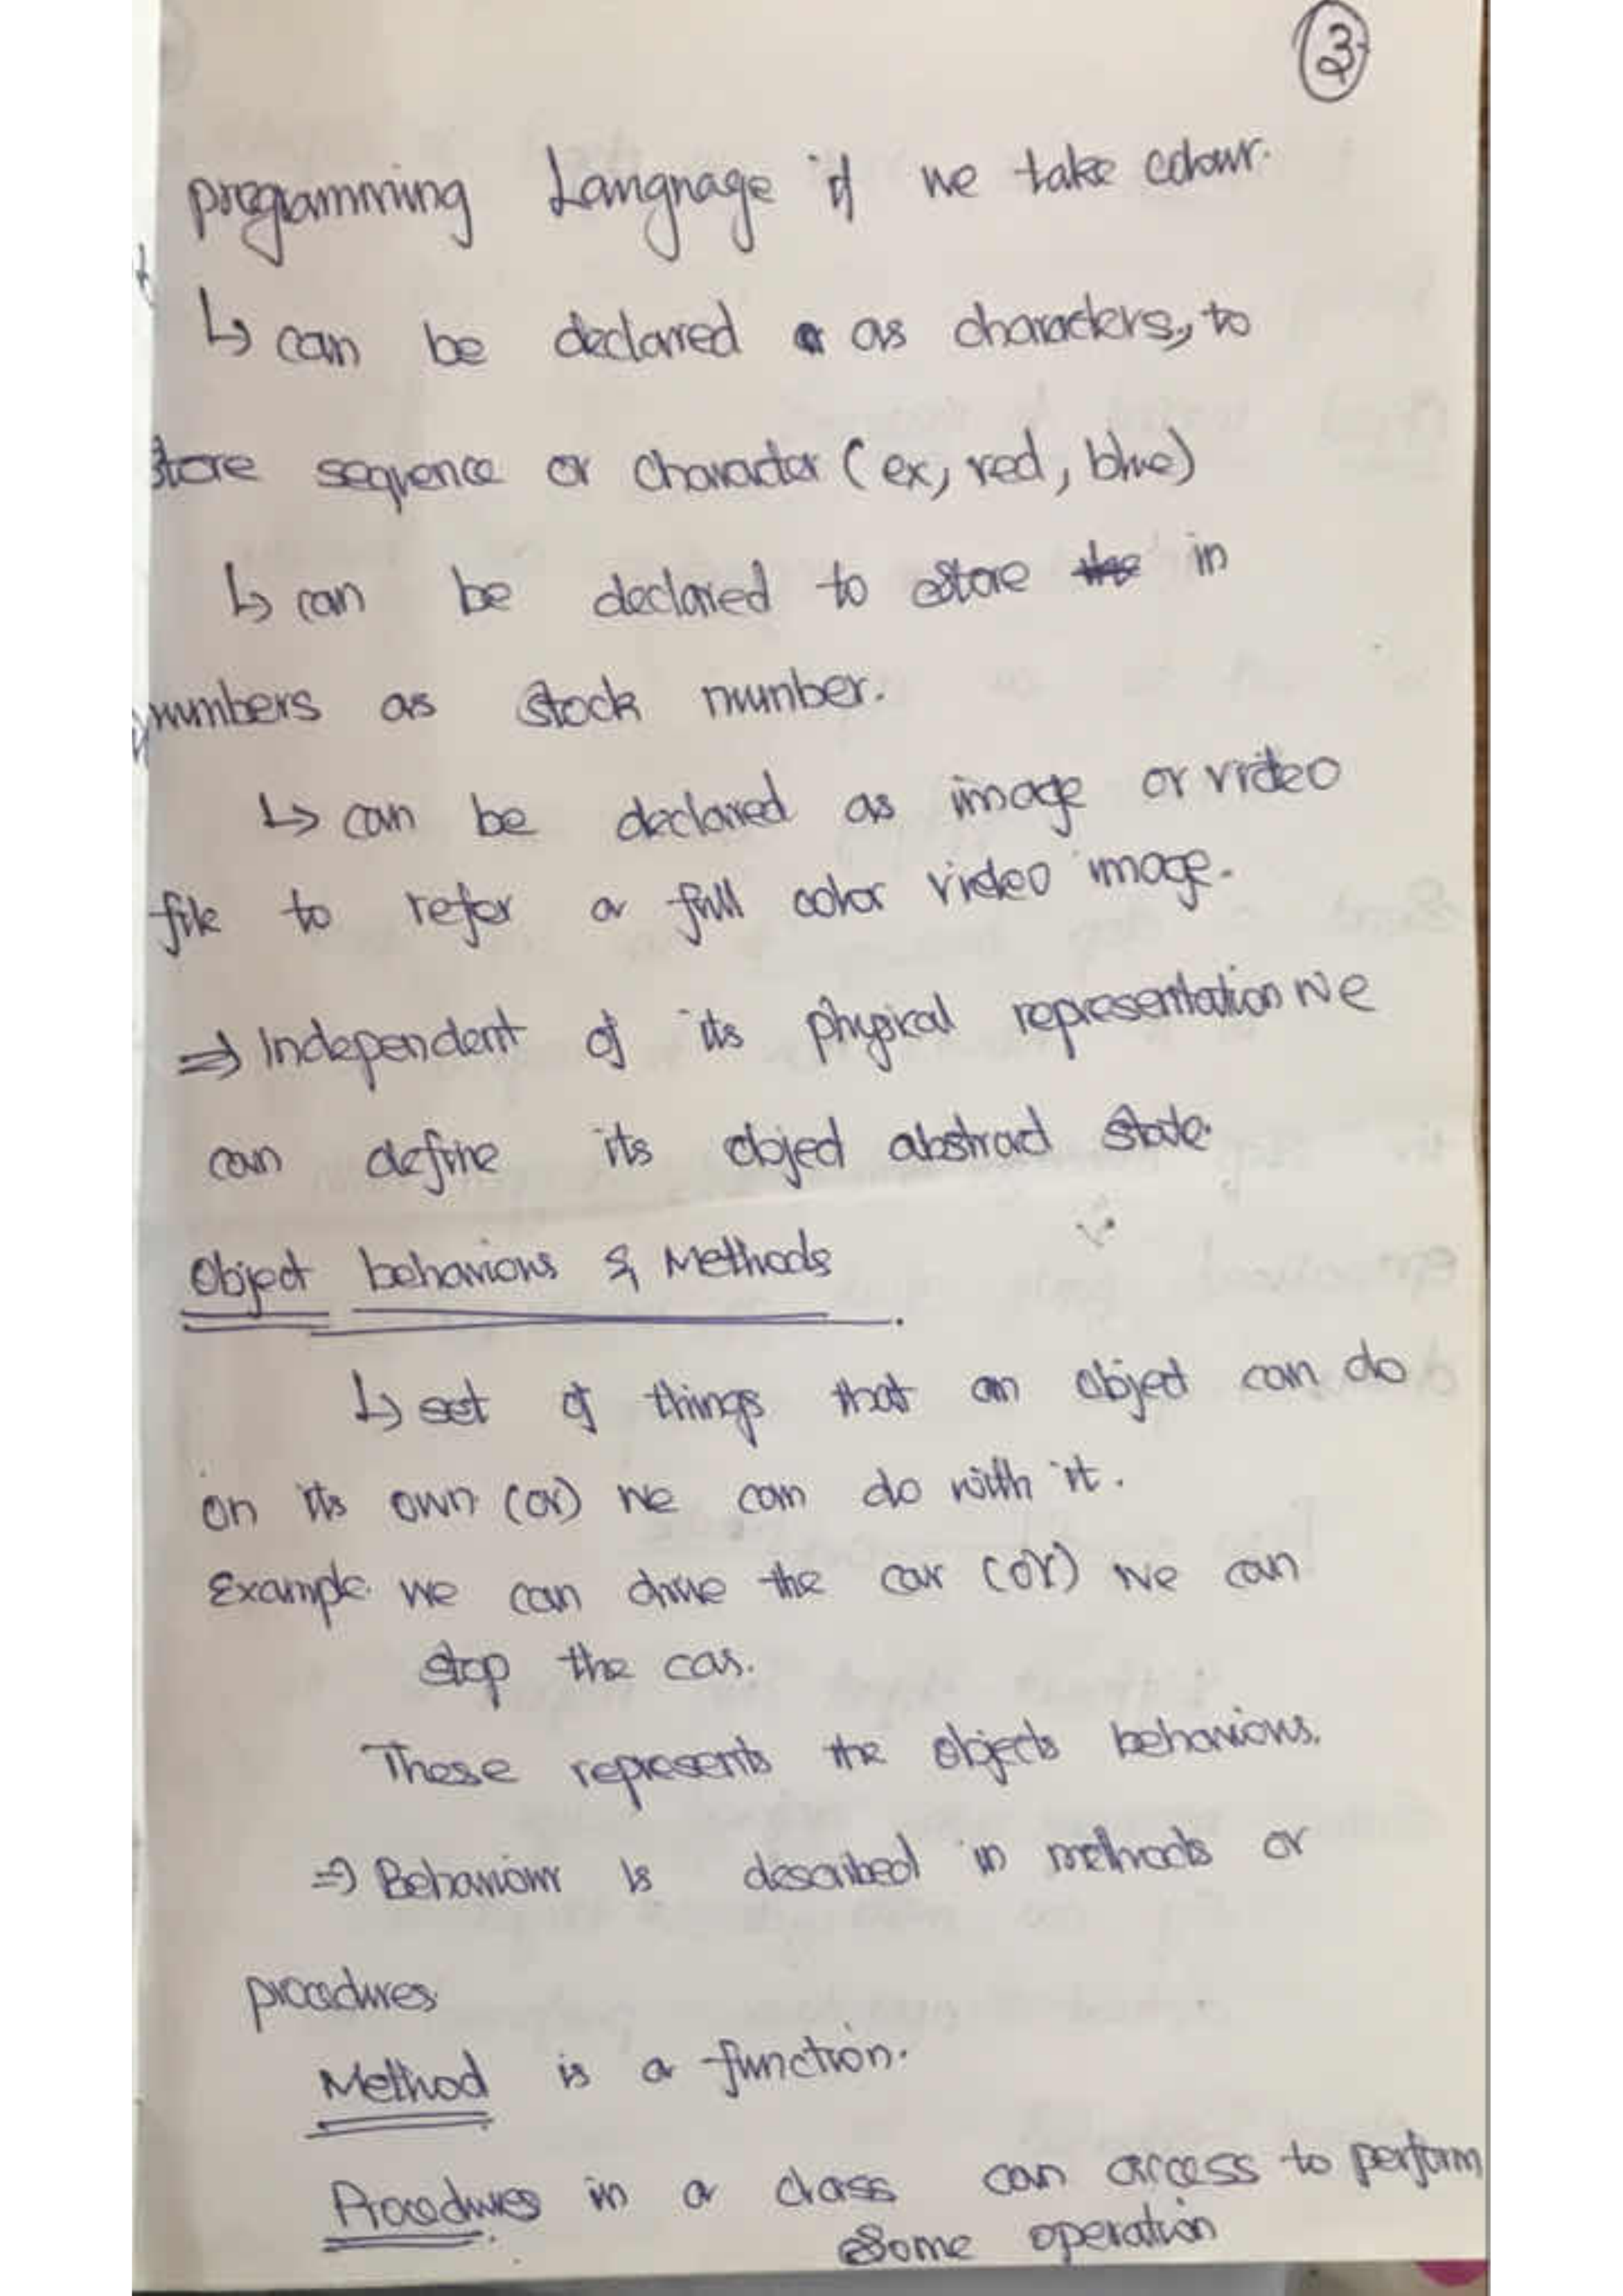 3
programming Language if we take colour.
↳ can be declared as characters, to
store sequence or character (ex, red, blue)
↳ can be declared to store the in
numbers as stock number.
↳ can be declared as image or video
file to refer a full color video image.
⇒ Independent of its physical representation we
can define its object abstract state.
Object behaviours & Methods
↳ set of things that an object can do
on its own (or) we can do with it.
Example we can drive the car (or) we can
stop the car.
These represents the objects behaviours.
⇒ Behaviour is described in methods or
procedures
Method is a function.
Procedures in a class can access to perform
some operation